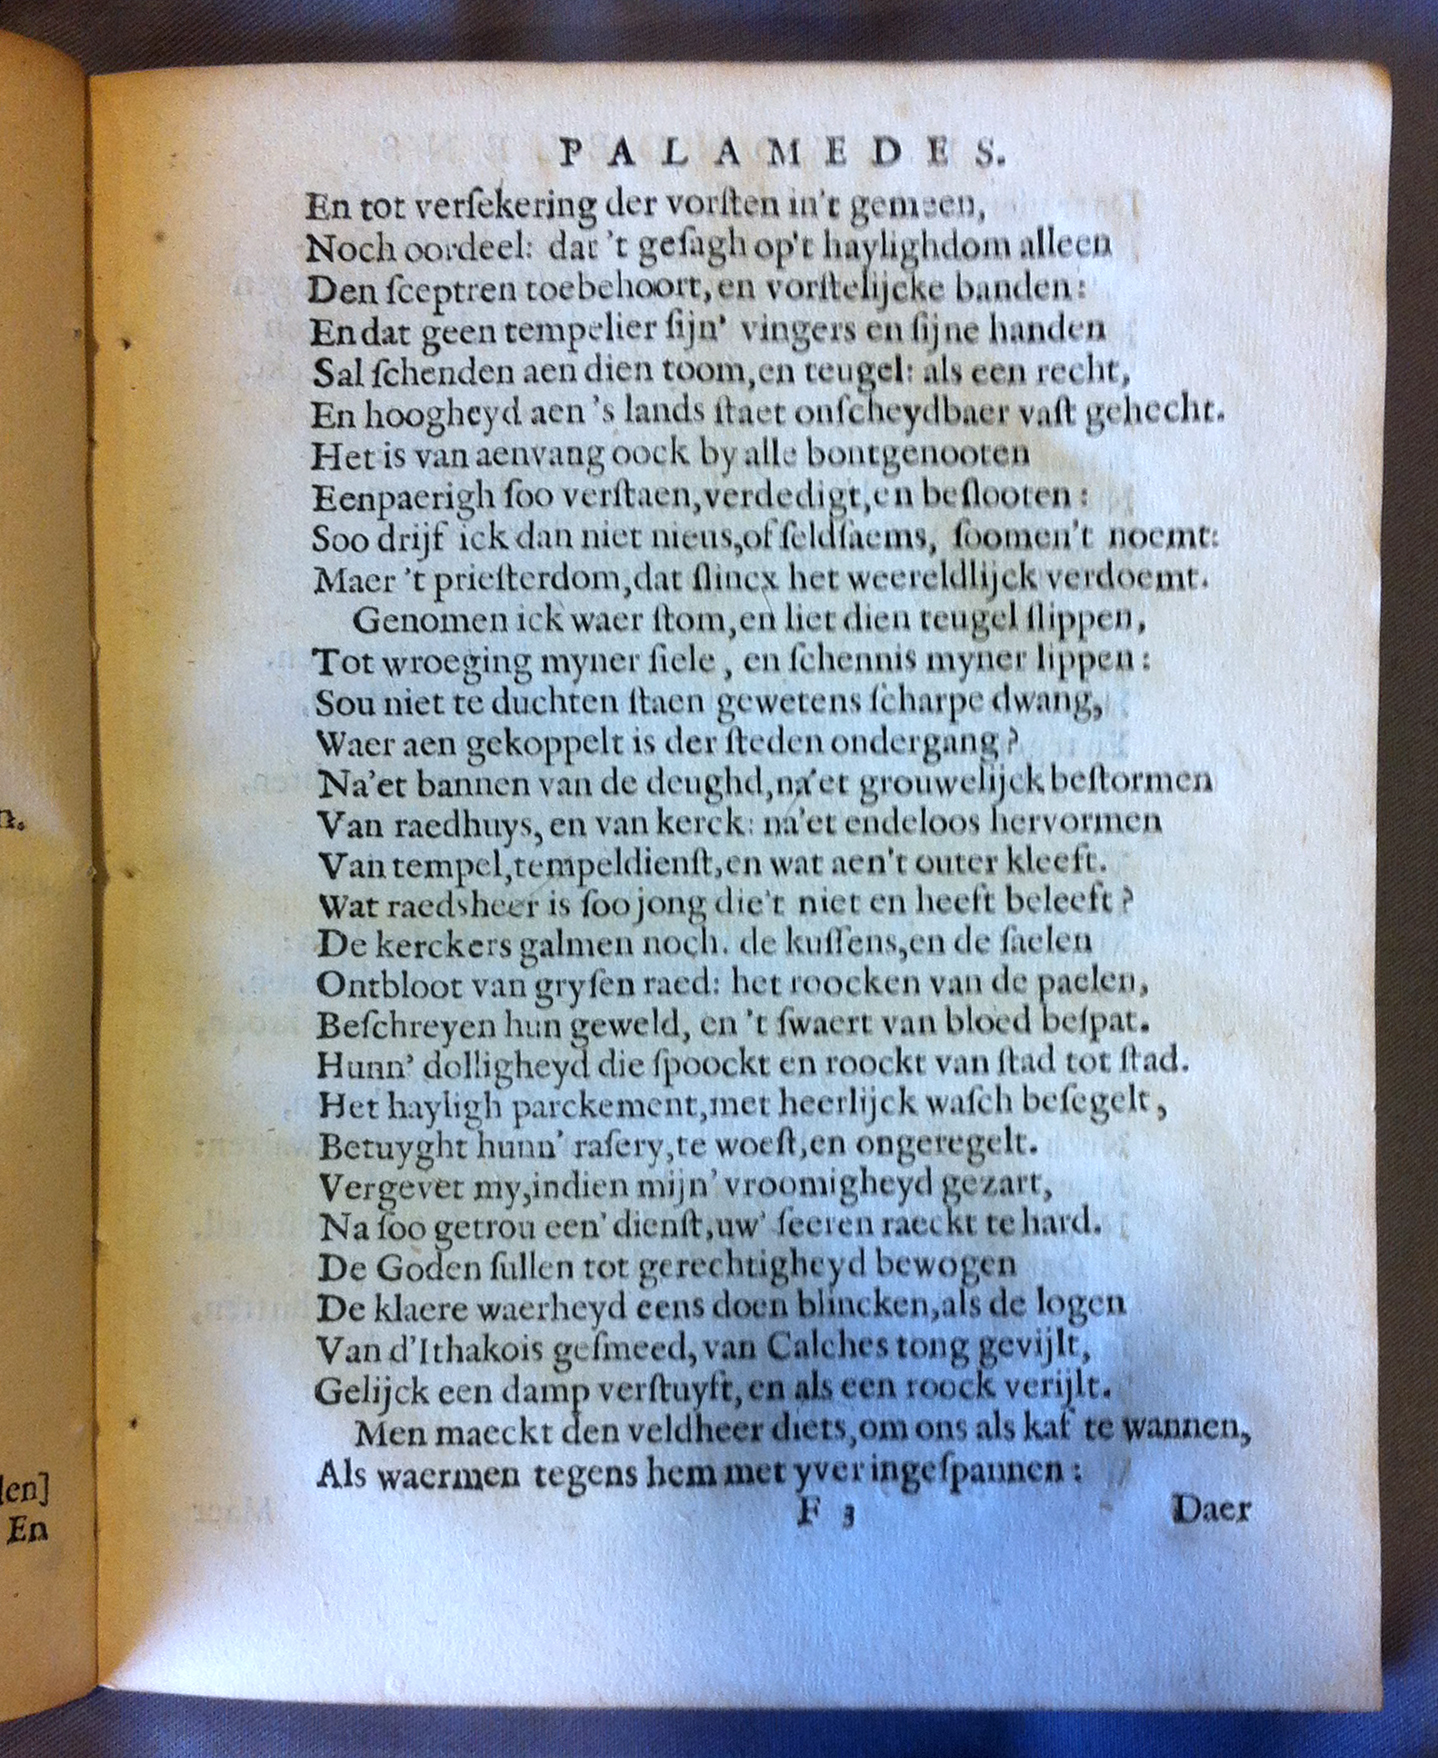 PALAMEDES.
En tot verſekering der vorſten in't gemeen,
Noch oordeel: dat 't geſagh op't haylighdom alleen
Den ſceptren toebehoort, en vorſtelijcke banden:
En dat geen tempelier ſijn' vingers en ſijne handen
Sal ſchenden aen dien toom, en teugel: als een recht,
En hoogheyd aen 's lands ſtaet onſcheydbaer vaſt gehecht.
Het is van aenvang oock by alle bontgenooten
Eenpaerigh ſoo verſtaen, verdedigt, en beſlooten:
Soo drijf ick dan niet nieus, of ſeldſaems, ſoomen't noemt:
Maer 't prieſterdom, dat ſlincx het weereldlijck verdoemt.
Genomen ick waer ſtom, en liet dien teugel ſlippen,
Tot wroeging myner ſiele, en ſchennis myner lippen:
Sou niet te duchten ſtaen gewetens ſcharpe dwang,
Waer aen gekoppelt is der ſteden ondergang?
Na'et bannen van de deughd, na'et grouwelijck beſtormen
Van raedhuys, en van kerck: na'et endeloos hervormen
Van tempel, tempeldienſt, en wat aen't outer kleeft.
Wat raedsheer is ſoo jong die't niet en heeft beleeft?
De kerckers galmen noch. de kuſſens, en de ſaelen
Ontbloot van gryſen raed: het roocken van de paelen,
Beſchreyen hun geweld, en 't ſwaert van bloed beſpat.
Hunn' dolligheyd die ſpoockt en roockt van ſtad tot ſtad.
Het hayligh parckement, met heerlijck waſch beſegelt,
Betuyght hunn' raſery, te woeſt, en ongeregelt.
Vergevet my, indien mijn' vroomigheyd gezart,
Na ſoo getrou een' dienſt, uw' ſeeren raeckt te hard.
De Goden ſullen tot gerechtigheyd bewogen
De klaere waerheyd eens doen blincken, als de logen
Van d'Ithakois geſmeed, van Calches tong gevijlt,
Gelijck een damp verſtuyft, en als een roock verijlt.
Men maeckt den veldheer diets, om ons als kaf te wannen,
Als waermen tegens hem met yver ingeſpannen:
F 3 Daer
n.
len]
En